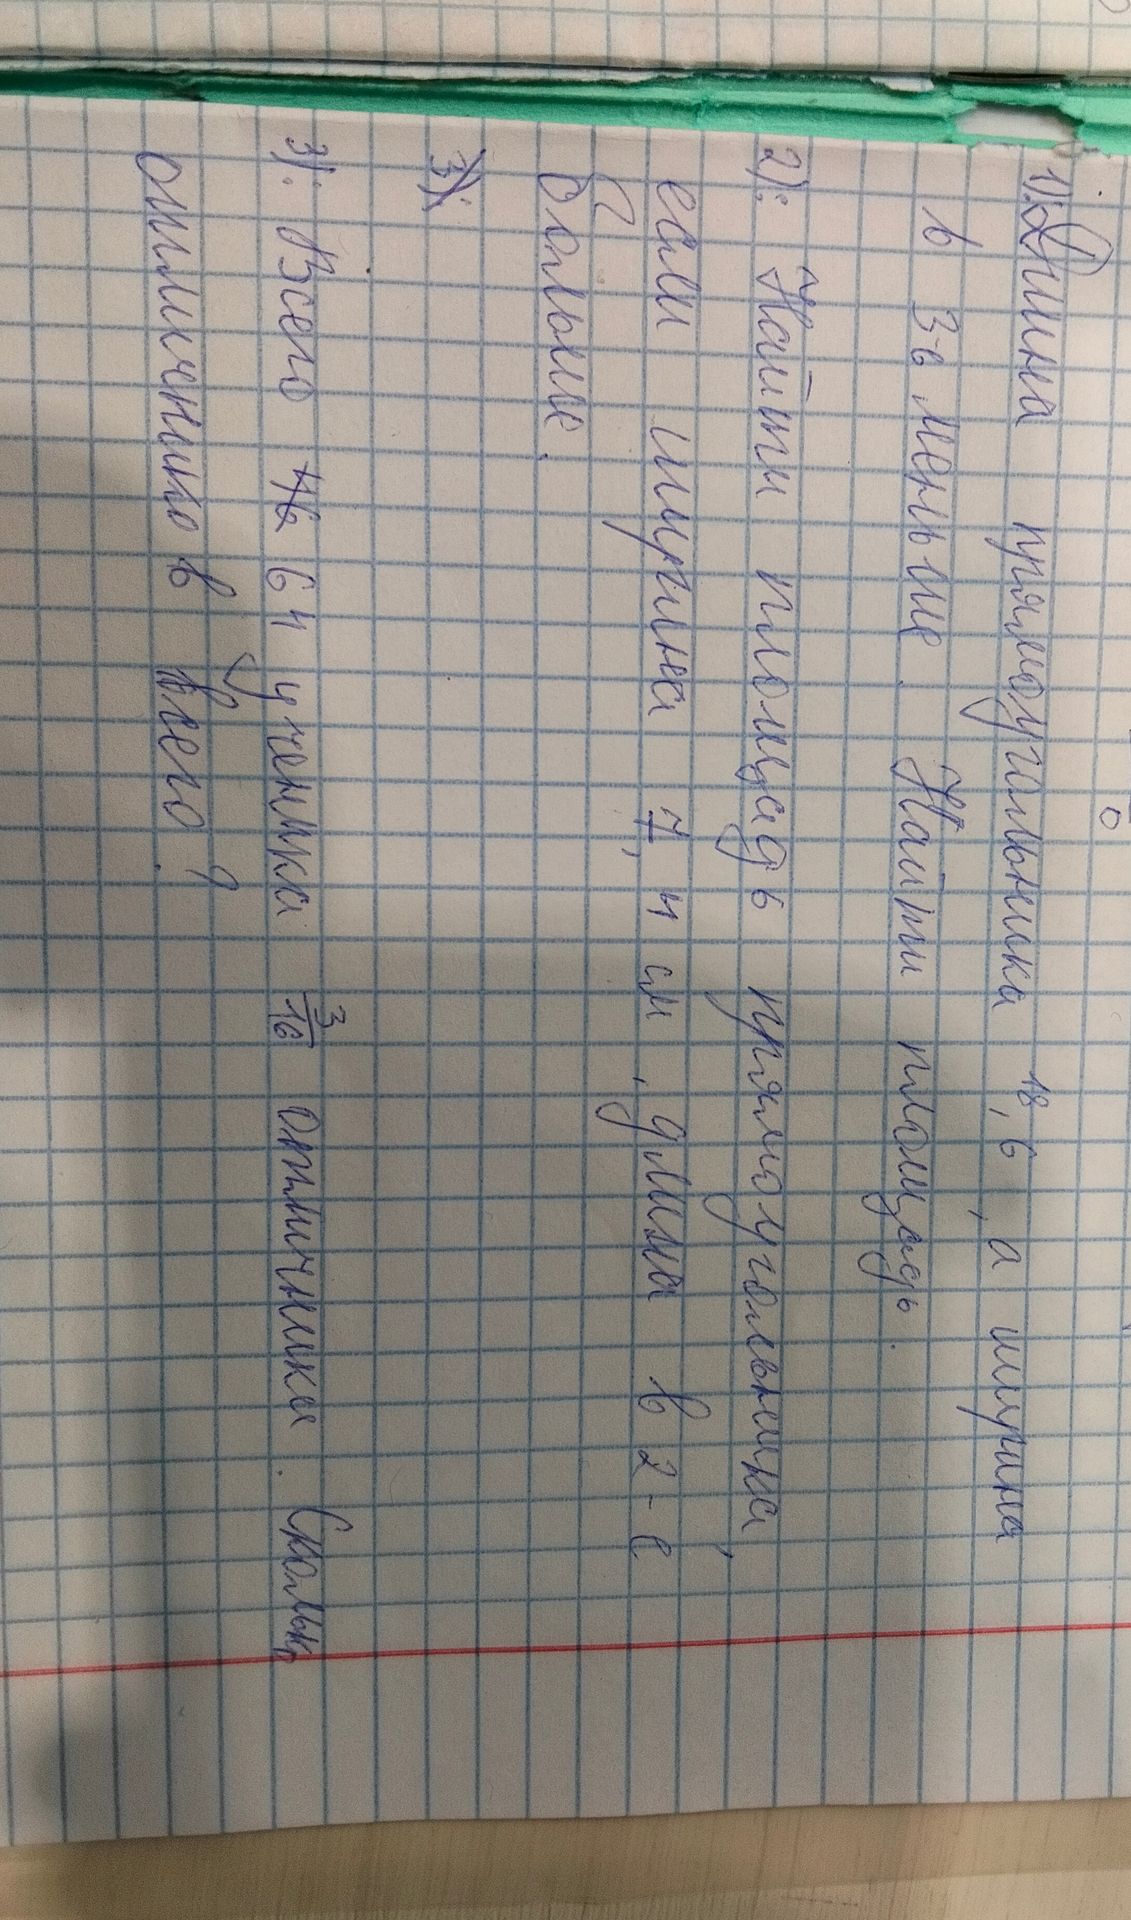 1): Длина прямоугольника 18,6, а ширина
в 3е меньше. Найти площадь.
2): Найти площадь прямоугольника,
если ширина 7,4 см, длина в 2-е
больше.
3):
3): Всего 46 64 ученика 3/16 отличника. Сколько
отличнико в всего?